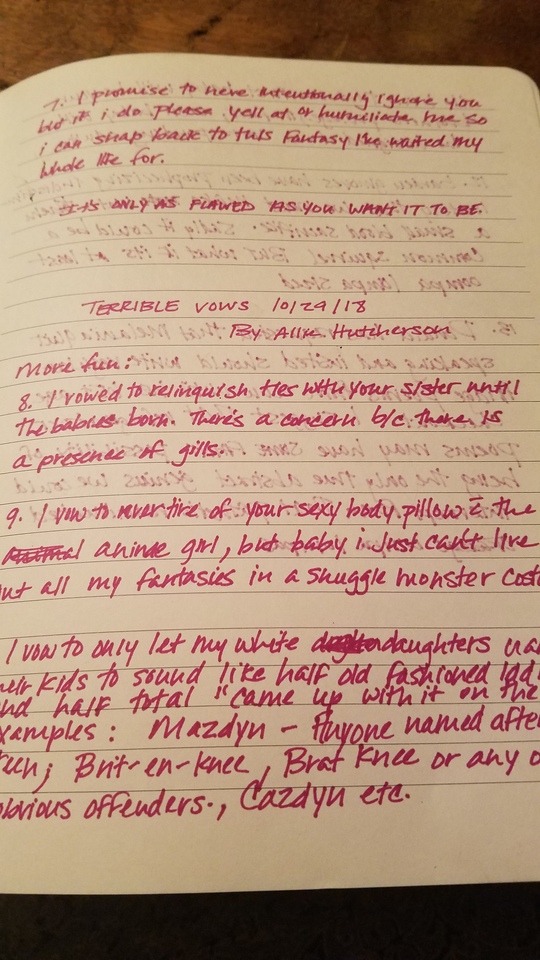 7. I promise to never intentionally ignore you
but if i do please yell at or humiliate me so
i can snap back to this Fantasy I've waited my
whole life for.
It is only as flawed as you want it to be.
TERRIBLE VOWS 10/29/18
By Allie Hutcherson
More fun:
8. I vowed to relinquish ties with your sister until
the babies born. There's a concern b/c there is
a presence of gills.
9. I vow to never tire of your sexy body pillow c̄ the
anime girl, but baby i just can't live
out all my fantasies in a snuggle monster
I vow to only let my white daughters
their kids to sound like half old fashioned
and half total "came up with it on the
examples: Mazdyn - Anyone named after
teen; Brit-en-knee, Brat Knee or any
obvious offenders., Cazdyn etc.